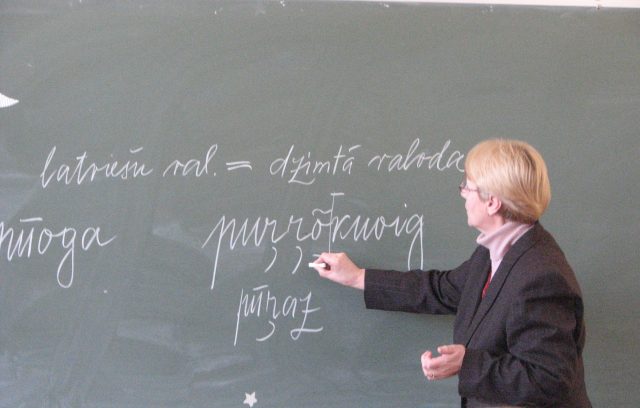 latviešu val. = dzimtā valoda
mūoga puŗŗõkuoig
pūŗaz